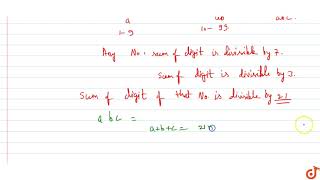 a
abc
1-9 10-99
Any No: sum of digit is divisible by 7.
Sum of digit is divisible by 3.
Sum of digit of that No is divisible by 21
a b c =
a+b+c = 21